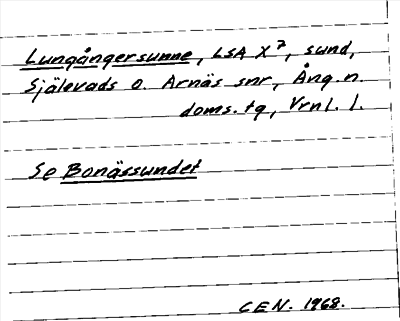 Lungångersunne, LSA X 7, sund,
Själevads o. Arnäs snr, Ång. n.
doms. tg, Vrnl. l.
Se Bonässundet
CEN. 1968.